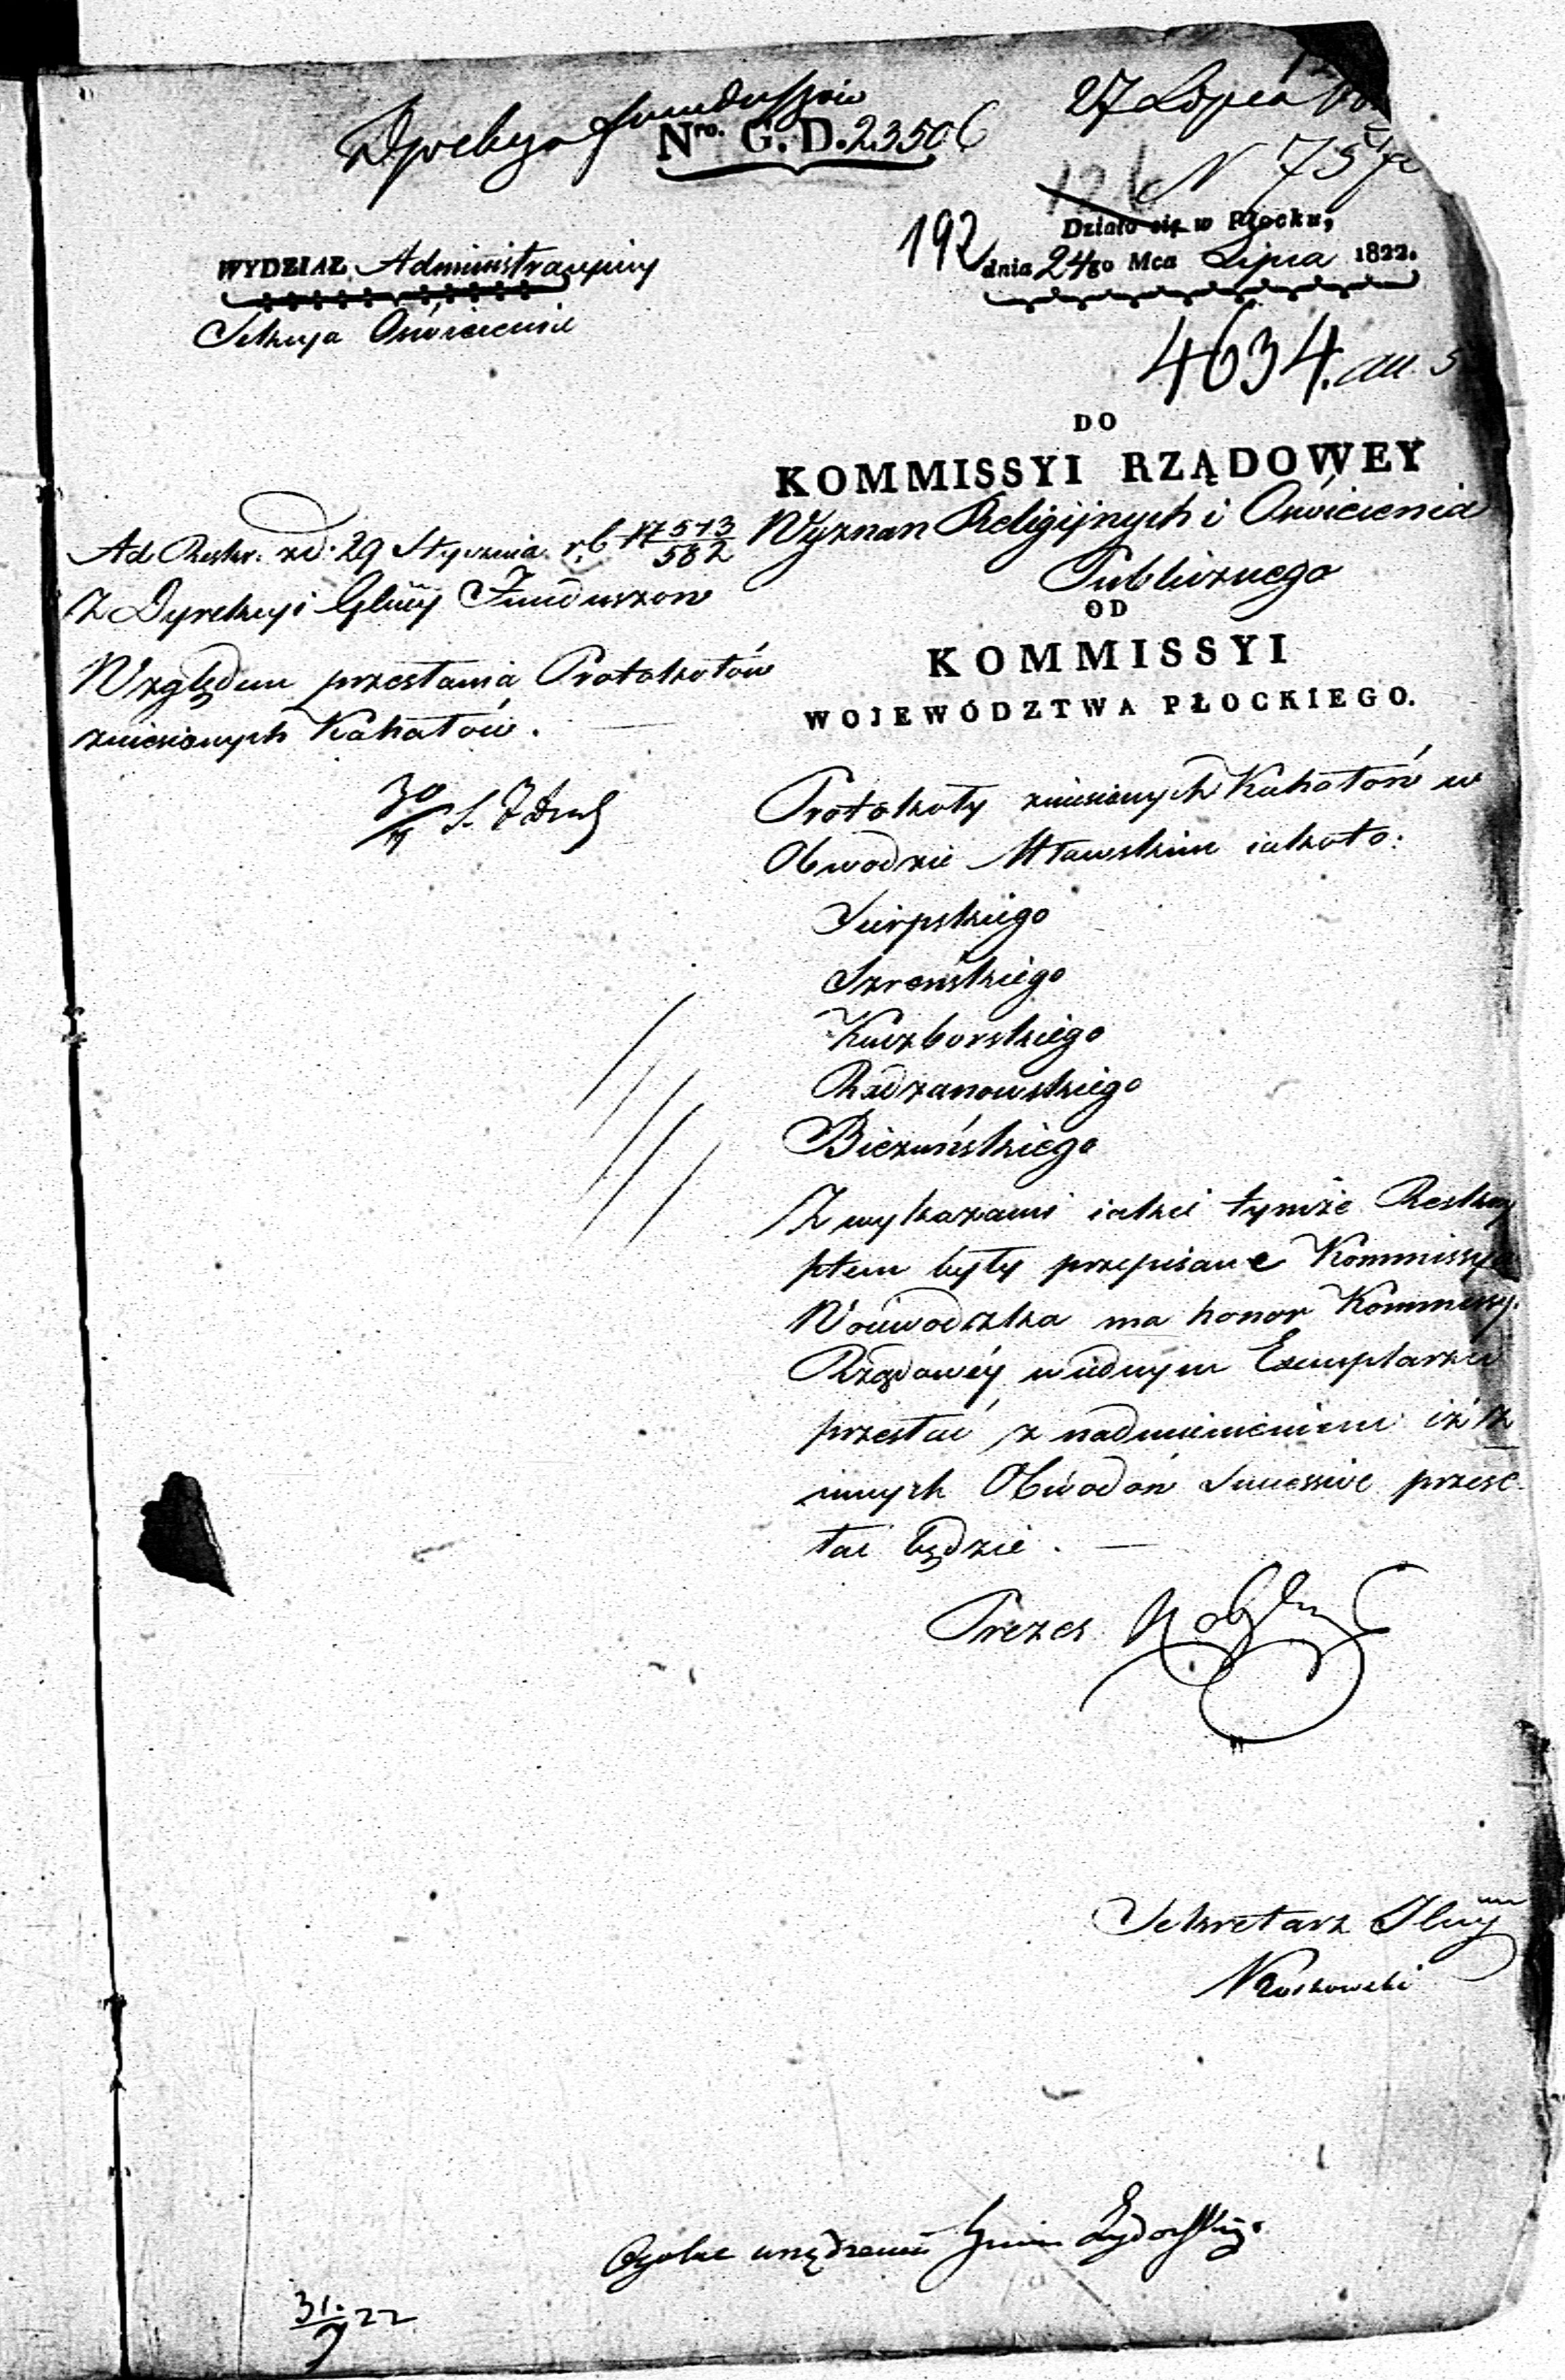 27 Lipca
Dyrekcya Funduszów
Nro. G. D. 23506
N 7572
126
Działo się w Płocku,
192
dnia 24go Mca Lipca 1822.
WYDZIAŁ Administracyiny
Sekcya Oświecenia
4634.
DO
KOMMISSYI RZĄDOWEY
Wyznan Religijnych i Oświecenia
Publicznego
OD
KOMMISSYI
WOJEWÓDZTWA PŁOCKIEGO.
Ad Reskr. zd: 29 Stycznia r.b. N 573/582
Z Dyrekcyi Głney Funduszow
Względem przesłania Protokołów
zniesionych Kahałów.
30/7
Protokoły zniesionych Kahałów w
Obwodzie Mławskim iakoto:
Sierpskiego
Szreńskiego
Kuczborskiego
Radzanowskiego
Bieżuńskiego
Z wykazami iakie tymże Reskry
ptem były przepisane Kommissya
Woiewodzka ma honor Kommissy.
Rządowéy w iednym Exemplarzu
przesłać z nadmienieniem iż z
innych Obwodów Successive przesé-
łać będzie.
Prezes
Sekretarz Jlny
Ogólne urządzenie Gmin Żydowskich
31./7 22